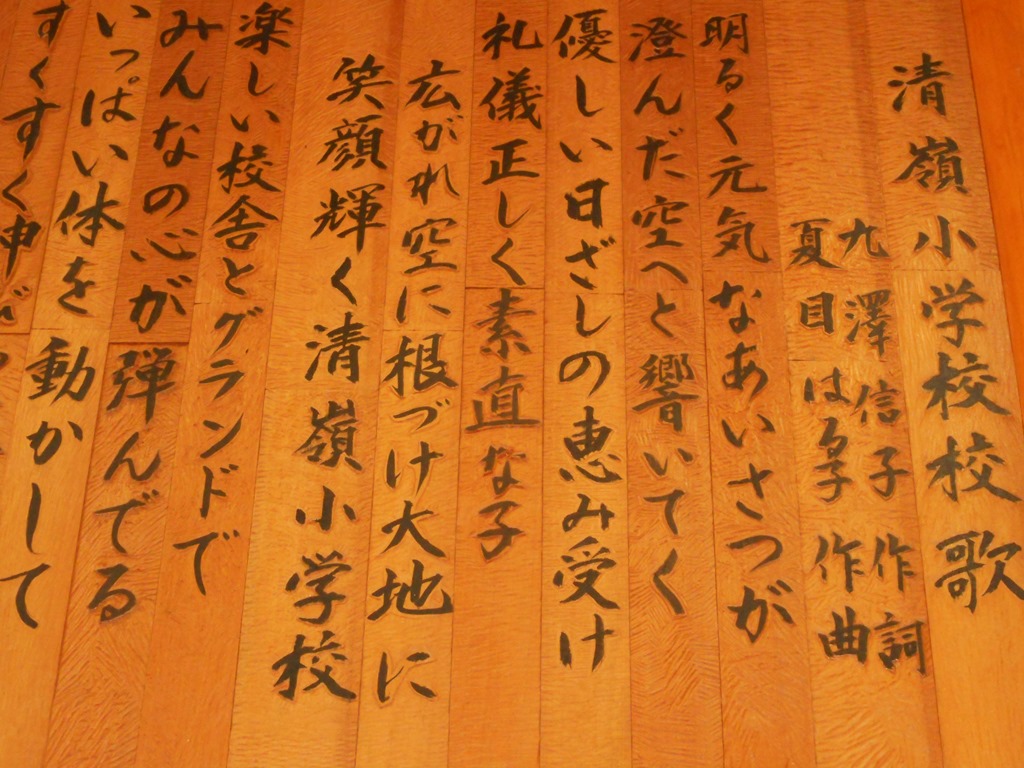 清嶺小学校校歌
九澤信子 作詞
夏目はる子 作曲
明るく元気なあいさつが
澄んだ空へと響いてく
優しい日ざしの恵み受け
礼儀正しく素直な子
広がれ空に根づけ大地に
笑顔輝く清嶺小学校
楽しい校舎とグランドで
みんなの心が弾んでる
いっぱい体を動かして
すくすく伸び